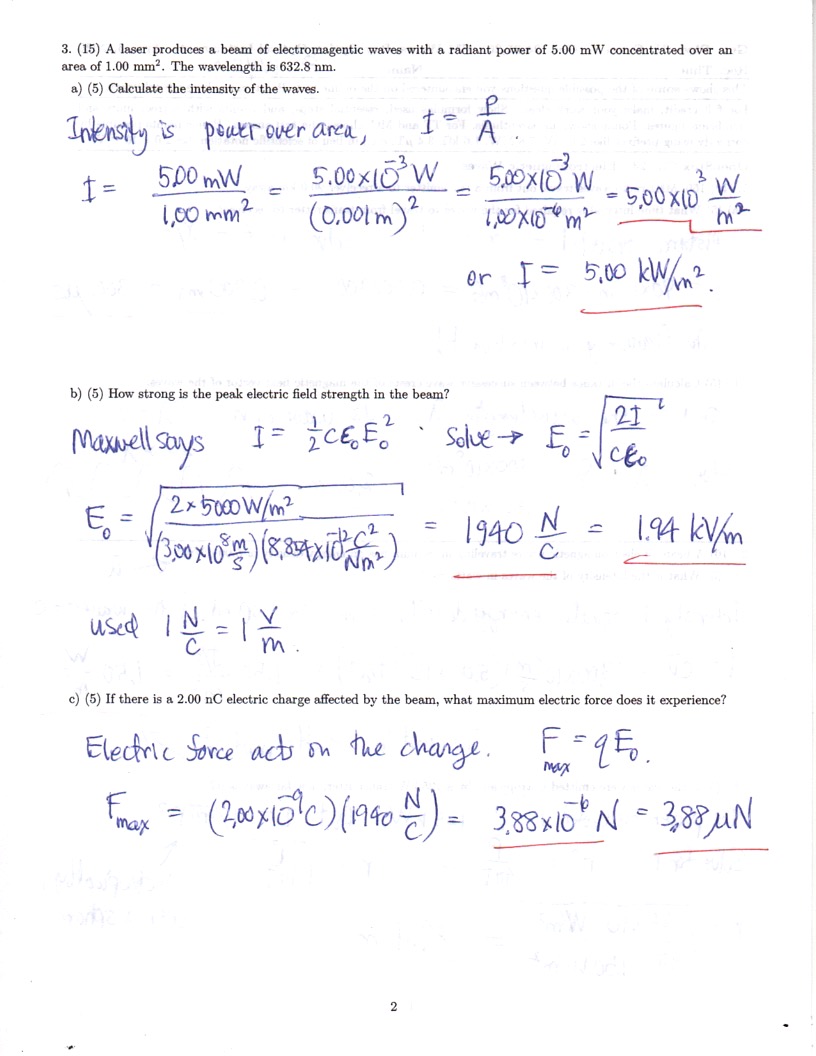 3. (15) A laser produces a beam of electromagentic waves with a radiant power of 5.00 mW concentrated over an
area of 1.00 mm². The wavelength is 632.8 nm.
a) (5) Calculate the intensity of the waves.
Intensity is power over area, I = P/A.
I = 5.00 mW / 1.00 mm² = 5.00×10⁻³ W / (0.001 m)² = 5.00×10⁻³ W / 1.00×10⁻⁶ m² = 5.00×10³ W/m²
or I = 5.00 kW/m².
b) (5) How strong is the peak electric field strength in the beam?
Maxwell says I = ½cε₀E₀². Solve → E₀ = √(2I / cε₀)
E₀ = √(2×5000 W/m² / (3.00×10⁸ m/s)(8.854×10⁻¹² C²/Nm²)) = 1940 N/C = 1.94 kV/m
used 1 N/C = 1 V/m.
c) (5) If there is a 2.00 nC electric charge affected by the beam, what maximum electric force does it experience?
Electric force acts on the charge. F max = qE₀.
Fmax = (2.00×10⁻⁹C)(1940 N/C) = 3.88×10⁻⁶ N = 3.88 μN
2